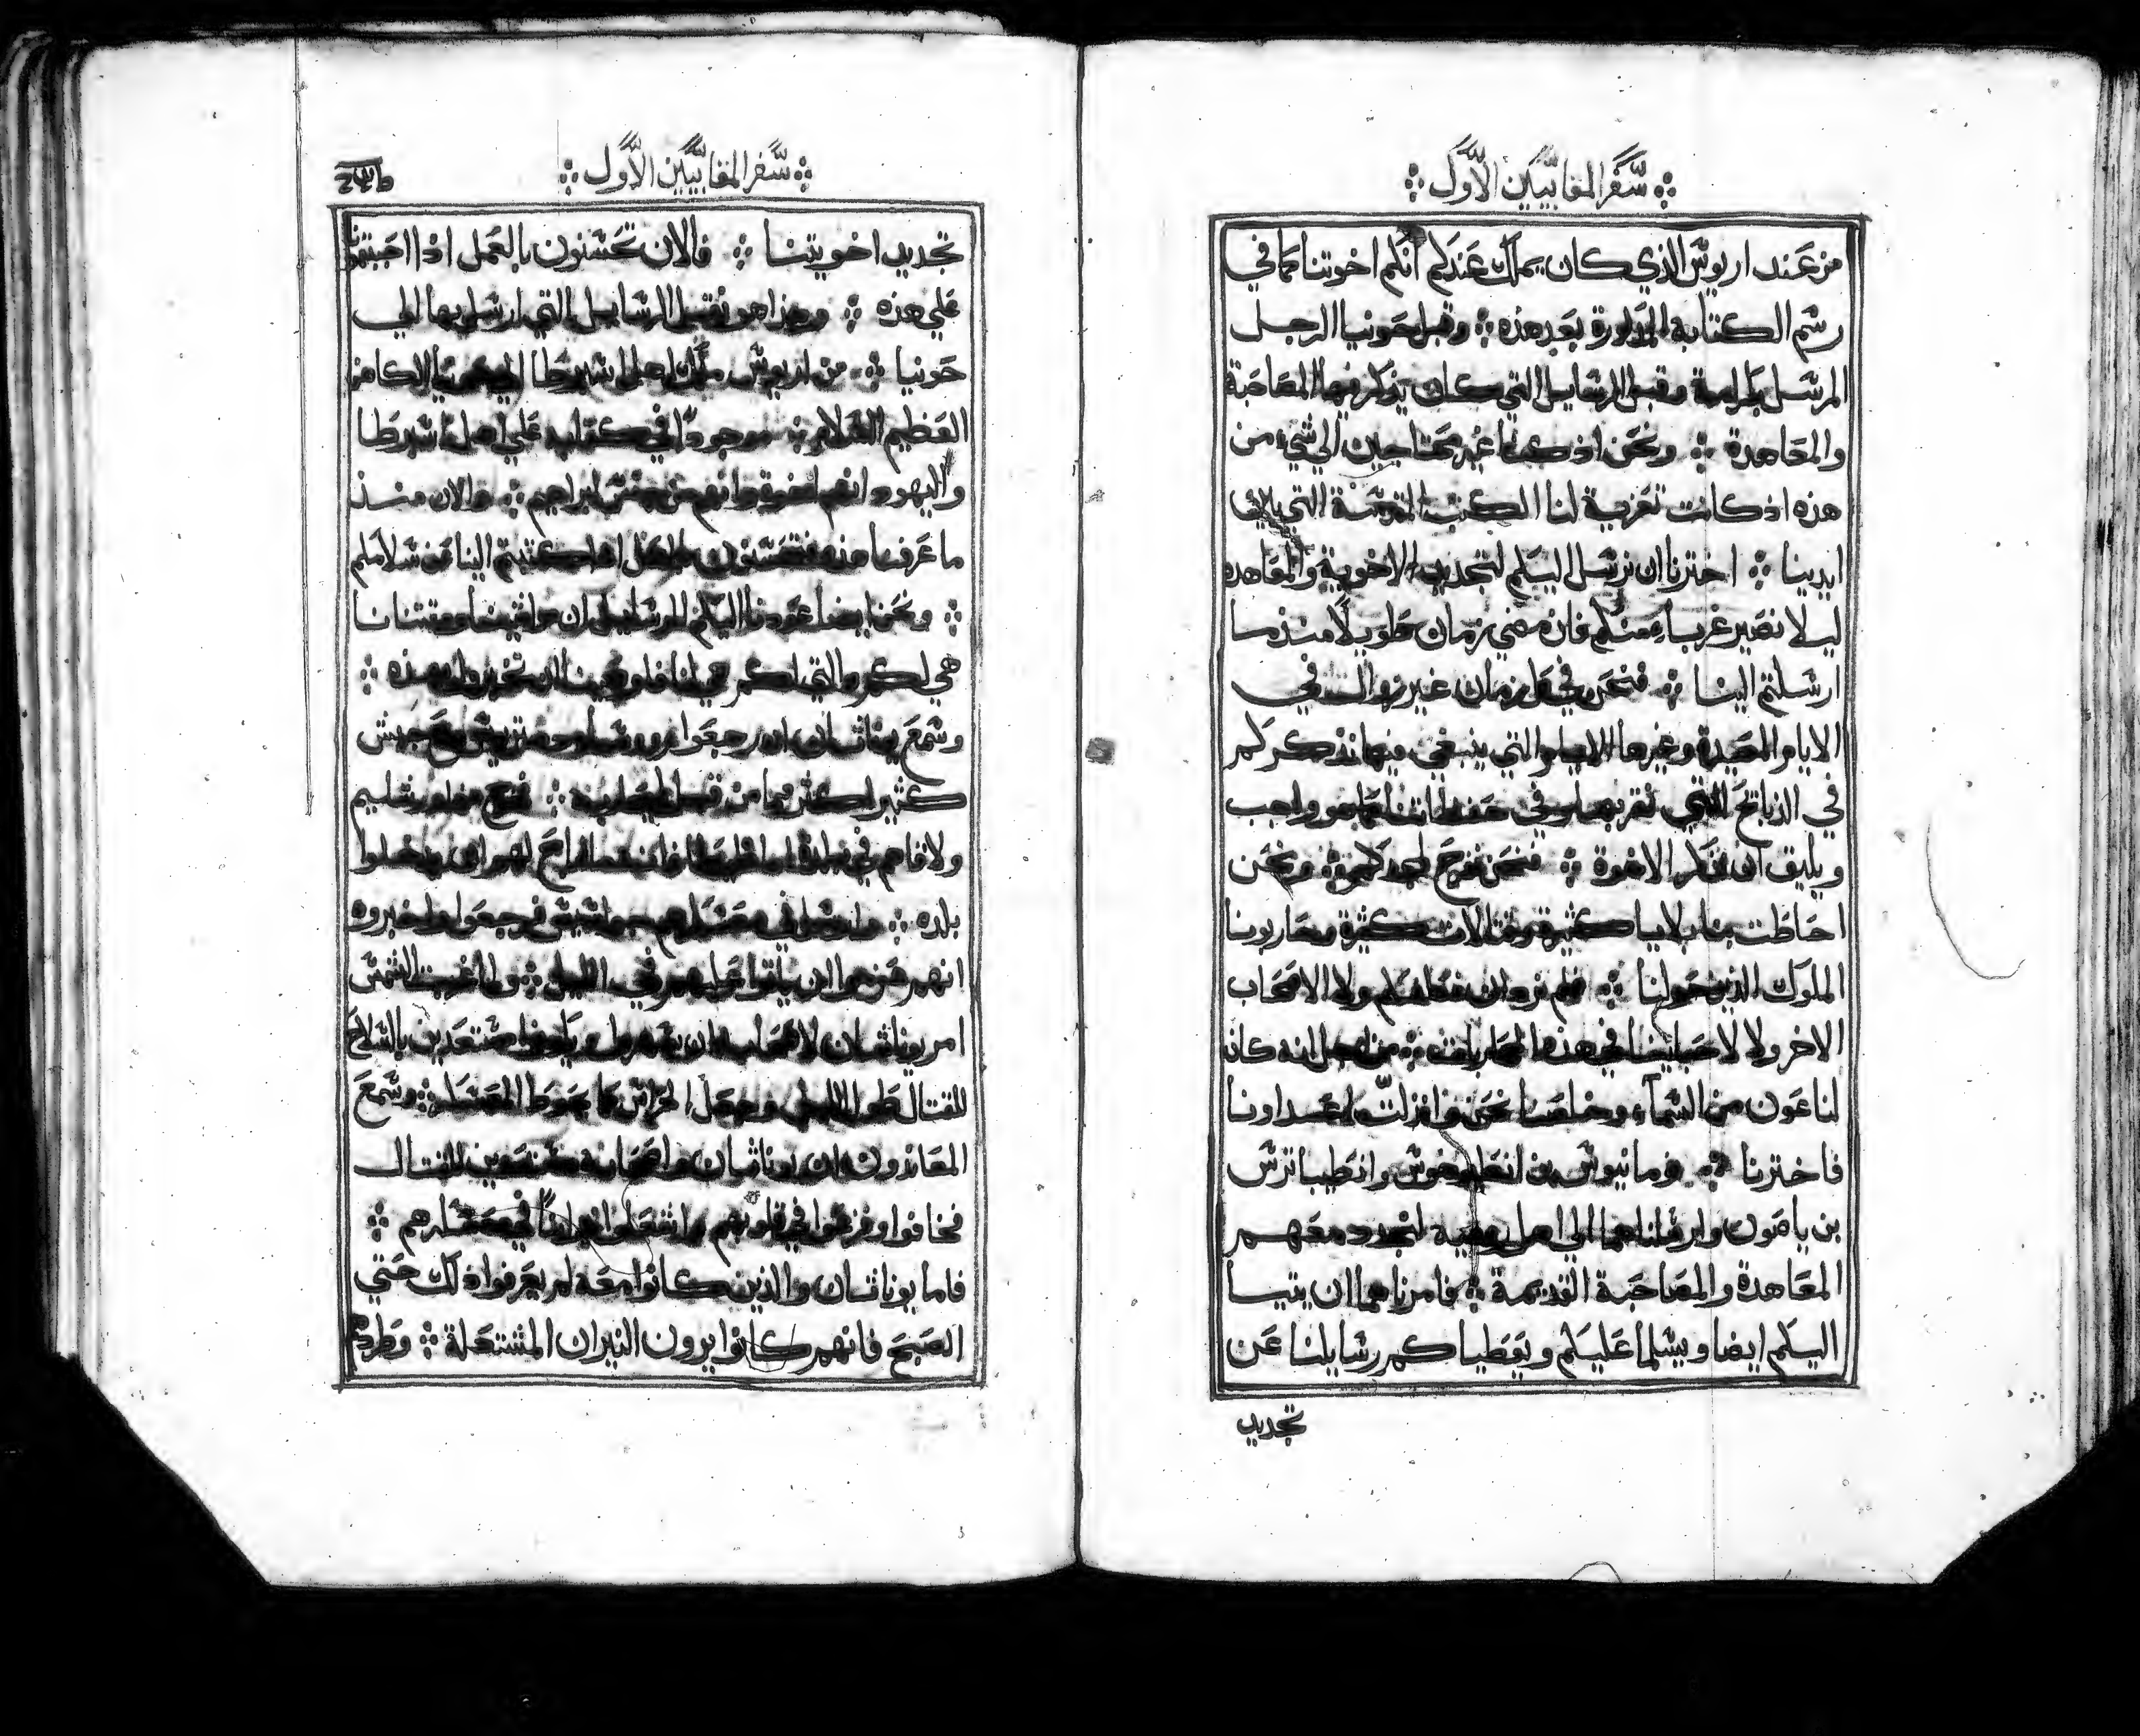 سفر المقابيين الاول
من عند اريوس الذي كان يملك عندكم انكم اخوتنا كما في
رسم الكتابة المذكورة بعد هذه وقبل حونيا الرجل
المرسل بكرامة وقبل الرسايل التي كان يذكر فيها المصاحبة
والمعاهدة ونحن اذ كنا غير محتاجين الي شي من
هذه اذ كانت تعزية لنا الكتب المقدسة التي
ايدينا اخترنا ان نرسل اليكم لتجديد الاخوية والمعاهده
ليلا نصير غربا منكم فان مضي زمان طويلا منذ ما
ارسلتم الينا فنحن في كل زمان غير زوال في
الايام العيدة وغيرها الايام التي ينبغي فيها نذكركم
في الذبايح التي نقربها وفي حفظاتنا كما هو واجب
ويليق ان نذكر الاخوة فنحن نفرح لمجدكم ونحن
احاطت بنا بلايا كثيرة وقتالات كثيرة وحاربونا
الملوك الذين حولنا فلم نرد ان نثقلكم ولا الاصحاب
الاخر ولا لاحبابنا في هذه المحاربات من اجل انه كان
لنا عون من السماء وخلصنا نحن وانذلت اعداونا
فاخترنا نومانيوس بن انطيوخوس وانطيباترس
بن ياصون وارسلناهما الي اهل رومية لتجدد معهم
المعاهدة والمصاحبة القديمة فامرناهما ان يتيا
اليكم ايضا ويسلما عليكم ويعطياكم رسايلنا عن
تجديد
سفر المقابيين الاول
تجديد اخويتنا فالان تحسنون بالعمل اذا اجبتمونا
علي هذه وهذا هو نقل الرسايل التي ارسل بها الي
حونيا من اريوس ملك اهل اسبرطا الي حونيا الكاهن
العظيم السلام موجودا في كتابه علي اهل اسبرطا
واليهود انهم اخوة وانهم من جنس ابراهيم والان منذ
ما عرفنا هذه فتحسنون بالعمل اذا كتبتم الينا عن سلامكم
ونحن ايضا عودنا اليكم الرسايل ان مواشينا ومقتنانا
هي لكم والتي لكم هي لنا فاوصينا ان تخبروا بهذه
وسمع يوناثان ان رجعوا روسا ديمتريوس مع جيش
كثير اكثر مما من قبل ليحاربه فخرج من اورشليم
ولاقاهم في بلدة اماثيطا فانه ما فرج لهم ان يدخلوا
بلده وارسل في معسكرهم جواسيس فرجعوا واخبروه
انهم عزموا ان ياتوا عليهم في الليل ولما غربت الشمس
امر يوناثان لاصحابه ان يسهروا ويكونوا مستعدين بالسلاح
للقتال طول الليل وجعل الحراس كما يحوط المعسكر وسمع
المعاندون ان يوناثان واصحابه مستعدين للقتال
فخافوا وفزعوا في قلوبهم واشعلوا نيرانا في معسكرهم
فاما يوناثان والذين كانوا معه لم يعرفوا ذلك حتي
الصبح فانهم كانوا يرون النيران المشتعلة وطردهم